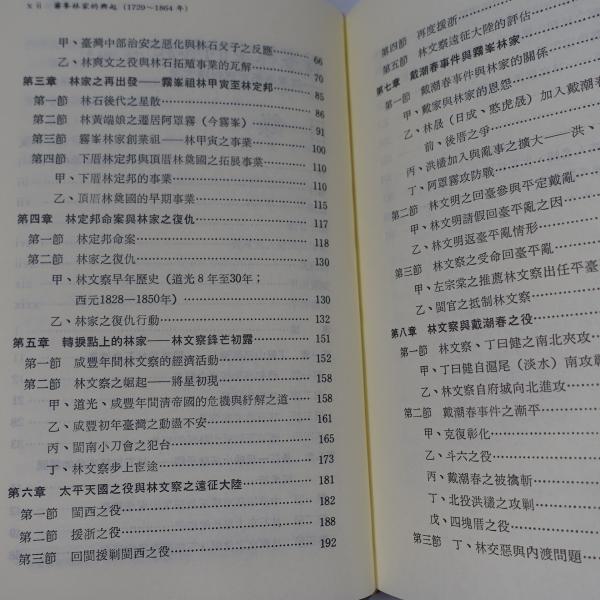 xii 霧峯林家的興起（1729～1864年）
甲、臺灣中部治安之惡化與林石父子之反應 66
乙、林爽文之役與林石拓殖事業的瓦解 70
第三章 林家之再出發——霧峯祖林甲寅至林定邦 85
第一節 林石後代之星散 86
第二節 林黃端娘之遷居阿罩霧（今霧峯） 91
第三節 霧峯林家創業祖——林甲寅之事業 100
第四節 下厝林定邦與頂厝林奠國之拓展事業 110
甲、下厝林定邦的事業 110
乙、頂厝林奠國的早期事業 115
第四章 林定邦命案與林家之復仇 117
第一節 林定邦命案 118
第二節 林家之復仇 130
甲、林文察早年歷史（道光8年至30年；
西元1828—1850年） 130
乙、林家之復仇行動 132
第五章 轉捩點上的林家——林文察鋒芒初露 151
第一節 咸豐年間林文察的經濟活動 152
第二節 林文察之崛起——將星初現 158
甲、道光、咸豐年間清帝國的危機與紓解之道 158
乙、咸豐初年臺灣之動盪不安 161
丙、閩南小刀會之犯台 165
丁、林文察步上宦途 173
第六章 太平天國之役與林文察之遠征大陸 181
第一節 閩西之役 182
第二節 援浙之役 188
第三節 回閩援剿閩西之役 192
第四節 再度援浙
第五節 林文察遠征大陸的評估
第七章 戴潮春事件與霧峯林家
第一節 戴潮春事件與林家的關係
甲、戴家與林家的恩怨
乙、林晟（日成、憨虎晟）加入戴潮春
前、後厝之爭
丙、洪欉加入與亂事之擴大——洪、
丁、阿罩霧攻防戰
第二節 林文明之回臺參與平定戴亂
甲、林文明請假回臺平亂之因
乙、林文明返臺平亂情形
第三節 林文察之受命回臺平亂
甲、左宗棠之推薦林文察出任平臺
乙、閩官之抵制林文察
第八章 林文察與戴潮春之役
第一節 林文察、丁曰健之南北夾攻
甲、丁曰健自滬尾（淡水）南攻
乙、林文察自府城向北進攻
第二節 戴潮春事件之漸平
甲、克復彰化
乙、斗六之役
丙、戴潮春之被擒斬
丁、北投洪欉之攻剿
戊、四塊厝之役
第三節 丁、林交惡與內渡問題